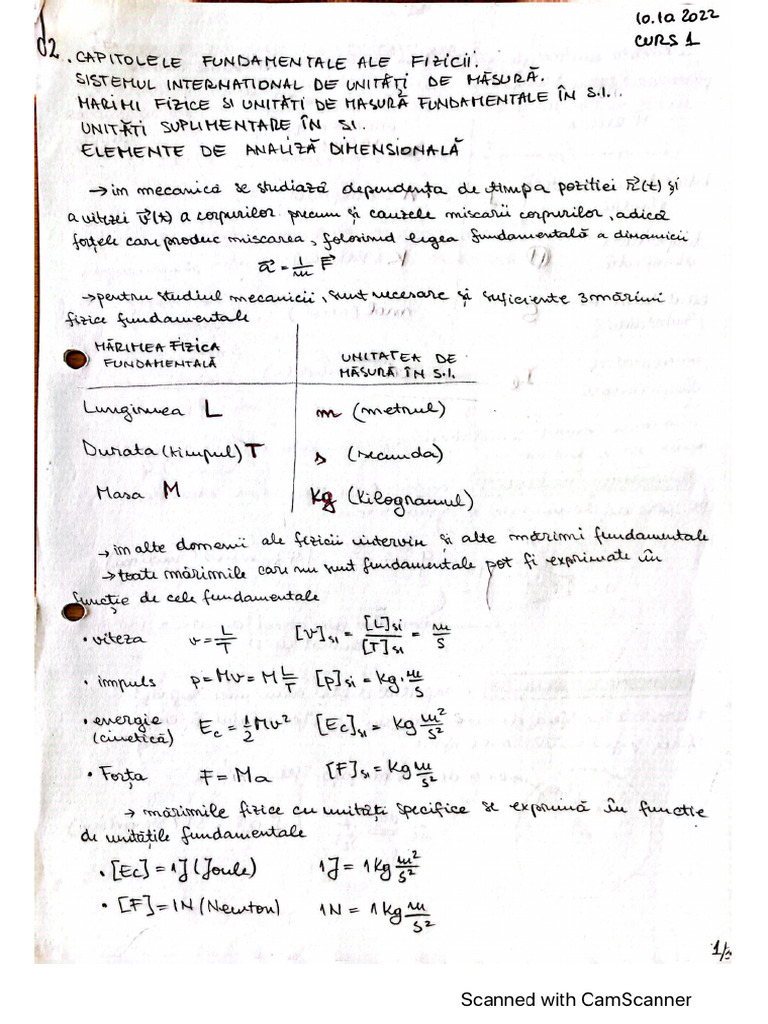 10.10.2022
CURS 1
d2. CAPITOLELE FUNDAMENTALE ALE FIZICII.
SISTEMUL INTERNATIONAL DE UNITĂȚI DE MĂSURĂ.
MARIMI FIZICE SI UNITĂTI DE MASURĂ FUNDAMENTALE ÎN S.I.
UNITĂTI SUPLIMENTARE ÎN SI.
ELEMENTE DE ANALIZĂ DIMENSIONALĂ
→ în mecanică se studiază dependența de timp a poziției r⃗(t) și
a vitezei v⃗(t) a corpurilor precum și cauzele miscarii corpurilor, adică
forțele care produc miscarea, folosind legea fundamentală a dinamicii
a⃗ = 1/m F⃗
→ pentru studiul mecanicii, sunt necesare și suficiente 3 mărimi
fizice fundamentale
MĂRIMEA FIZICA FUNDAMENTALĂ | UNITATEA DE MĂSURĂ ÎN S.I.
Lungimea L | m (metrul)
Durata (timpul) T | s (secunda)
Masa M | kg (kilogramul)
→ în alte domenii ale fizicii intervin și alte mărimi fundamentale
→ toate mărimile care nu sunt fundamentale pot fi exprimate în
funcție de cele fundamentale
• viteza v = L/T [v]SI = [L]SI/[T]SI = m/s
• impuls p = Mv = M L/T [p]SI = kg · m/s
• energie (cinetică) Ec = 1/2 Mv² [Ec]SI = kg m²/s²
• Forța F = Ma [F]SI = kg m/s²
→ mărimile fizice cu unități specifice se exprimă în functie
de unitățile fundamentale
• [Ec] = 1J (Joule) 1J = 1kg m²/s²
• [F] = 1N (Newton) 1N = 1kg m/s²
Scanned with CamScanner